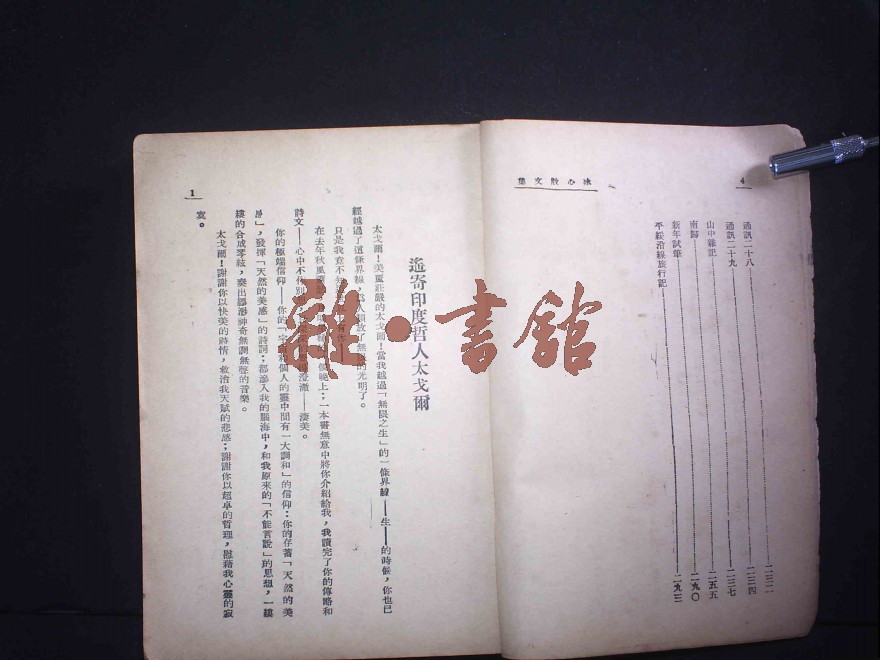 4
冰心散文集
通訊二十八……二三一
通訊二十九……二三四
山中雜記……二三七
南歸……二五五
新年試筆……二九〇
平綏沿線旅行記……二九三
1
遙寄印度哲人太戈爾
太戈爾！美麗莊嚴的太戈爾！當我越過「無限之生」的一條界線——生——的時候，你也已
經越過了這條界線，爲人類放了無限的光明了。
只是我竟不知
在去年秋風 個晚上；一本書無意中將你介紹給我，我讀完了你的傳略和
詩文——心中不作別 澄澈——淒美。
你的極端信仰——你的「宇宙和個人的靈中間有一大調和」的信仰；你的存蓄「天然的美
感」，發揮「天然的美感」的詩詞；都滲入我的腦海中，和我原來的「不能言說」的思想，一縷
縷的合成琴絃，奏出縹渺神奇無調無聲的音樂。
太戈爾！謝謝你以快美的詩情，救治我天賦的悲感；謝謝你以超卓的哲理，慰藉我心靈的寂
寞。
雜·書館